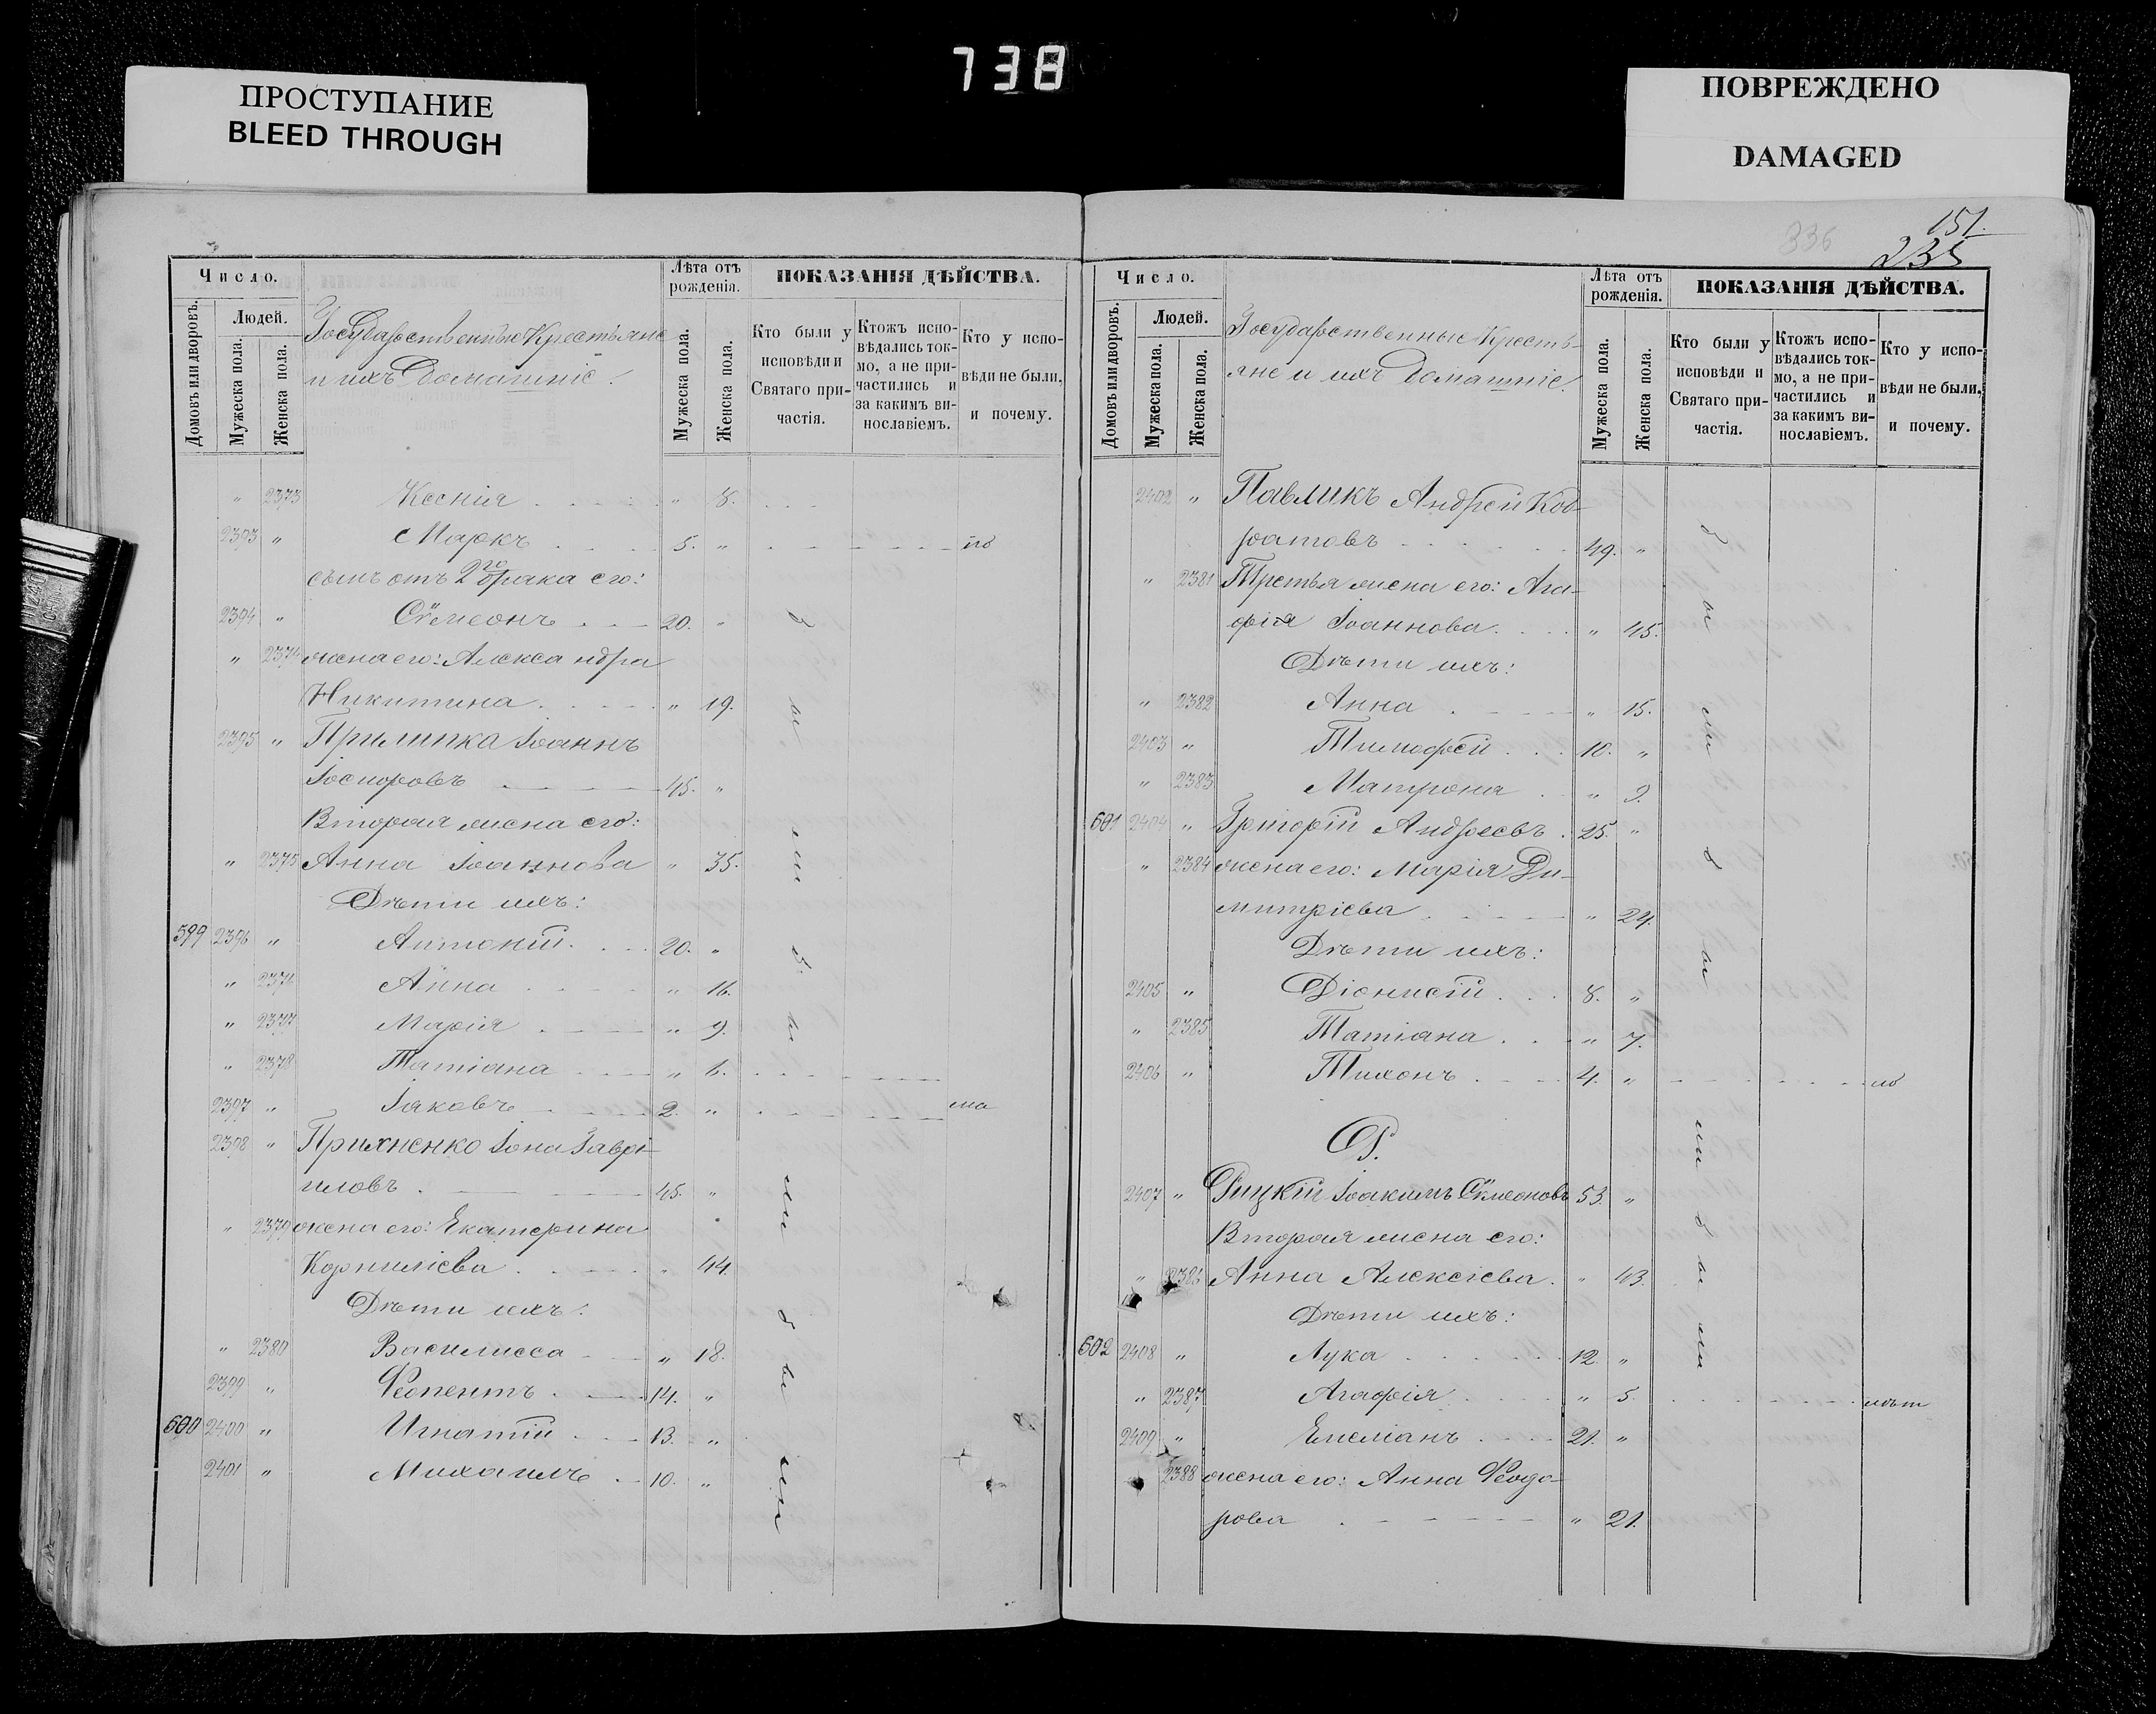 738
ПРОСТУПАНИЕ
BLEED THROUGH
ПОВРЕЖДЕНО
DAMAGED
Число.
Домовъ или дворовъ.
Людей.
Мужеска пола.
Женска пола.
Государственные Крестьяне
и ихъ Домашніе.
Лѣта отъ рожденія.
Мужеска пола.
Женска пола.
ПОКАЗАНІЯ ДѢЙСТВА.
Кто были у исповѣди и Святаго причастія.
Ктожъ исповѣдались токмо, а не причастились и за какимъ винославіемъ.
Кто у исповѣди не были, и почему.
" 2373 Ксенія " 8.
2393 " Маркъ 5. " по
сынъ отъ 2го брака его:
2394 " Сѵмеонъ 20. "
" 2374 жена его: Александра
Никитина " 19.
2395 " Прилипка Іоаннъ
Іосифовъ 45. "
Вторая жена его:
" 2375 Анна Іоаннова " 35.
Дѣти ихъ:
599 2396 " Антоній 20. "
" 2376 Анна " 16.
" 2377 Марія " 9.
" 2378 Татіана " 6.
2397 " Іаковъ 2. " ма
2398 " Прихненко Іона Гаврі-
иловъ 45. "
" 2379 жена его: Екатерина
Корниліева " 44.
Дѣти ихъ:
" 2380 Василисса " 18.
2399 " Ѳеопентъ 14. "
600 2400 " Игнатій 13. "
2401 " Михаилъ 10. "
были были
151.
336
235
Число.
Домовъ или дворовъ.
Людей.
Мужеска пола.
Женска пола.
Государственные Кресть-
яне и ихъ Домашніе.
Лѣта отъ рожденія.
Мужеска пола.
Женска пола.
ПОКАЗАНІЯ ДѢЙСТВА.
Кто были у исповѣди и Святаго причастія.
Ктожъ исповѣдались токмо, а не причастились и за какимъ винославіемъ.
Кто у исповѣди не были, и почему.
2402 " Павликъ Андрей Код-
ратовъ 49. "
" 2381 Третья жена его: Ага-
фія Іоаннова " 45.
Дѣти ихъ:
" 2382 Анна " 15.
2403 " Тимофей 10. "
" 2383 Матрона " 9.
601 2404 " Григорій Андреевъ 25. "
" 2384 жена его: Марія Ди-
митріева " 24.
Дѣти ихъ:
2405 " Діонисій 8. "
" 2385 Татіана " 7.
2406 " Тихонъ 4. "
Р.
2407 " Рицкій Іоакимъ Сѵмеоновъ 53. "
Вторая жена его:
" 2386 Анна Алексіева " 43.
Дѣти ихъ:
602 2408 " Лука 12. "
" 2387 Агафія " 5.
2409 " Емеліанъ 21. "
2388 жена его: Анна Ѳеодо-
рова " 21.